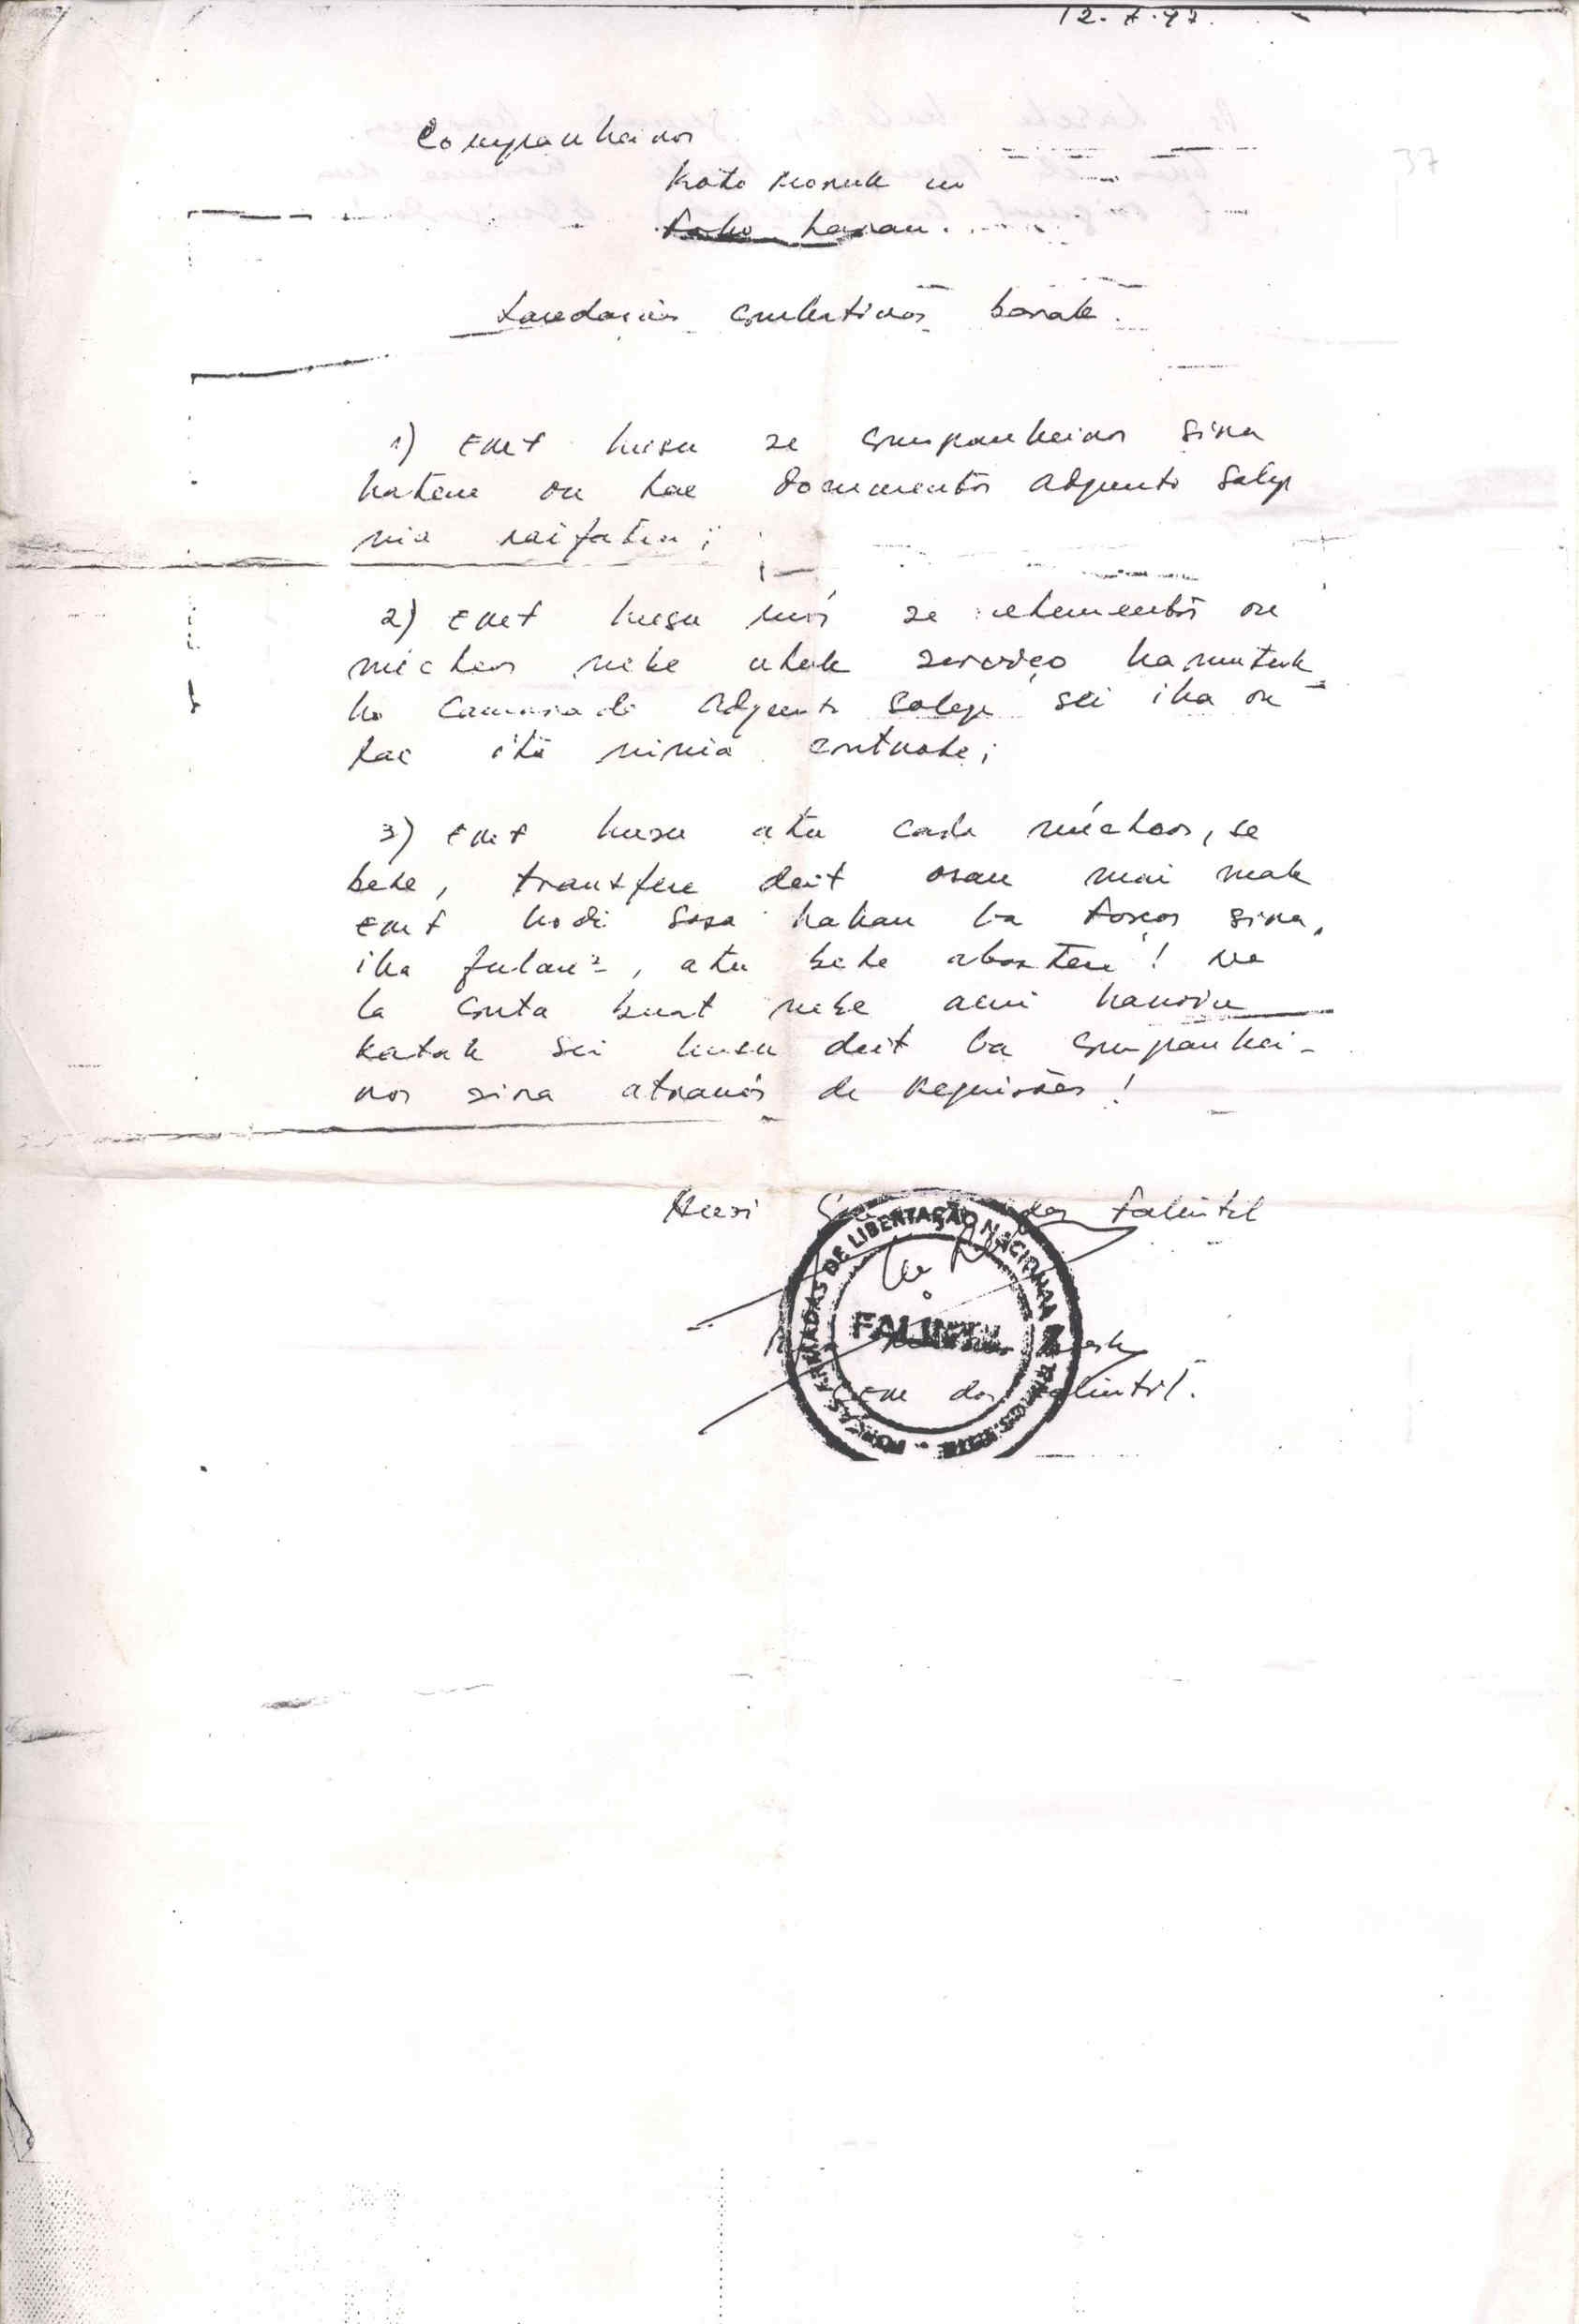 12.7.97.
37
Companheiros
Koto Moruk no
Foho Laran.
Saudações combativas barak.
1) EMF husu se companheiros sira
hatene ou lae documentos Adjunto Salep
nia raifatin;
2) EMF husu mós se elementos ou
núcleos nebe uluk serviço hamutuk
ho Camarada Adjunto Salep sei iha ou
lae ita ninia controle;
3) EMF husu atu cada núcleos, se
bele, transfere deit osan mai mak
EMF hodi sosa hahan ba forças sira,
iha fulan², atu bele abastece! Ne
la conta buat nebe ami hanoin
katak sei husu deit ba companhei-
ros sira através de requisões!
Husi dos Falintil
FORÇAS ARMADAS DE LIBERTAÇÃO NACIONAL DE TIMOR-LESTE
FALINTIL
CEM das Falintil.